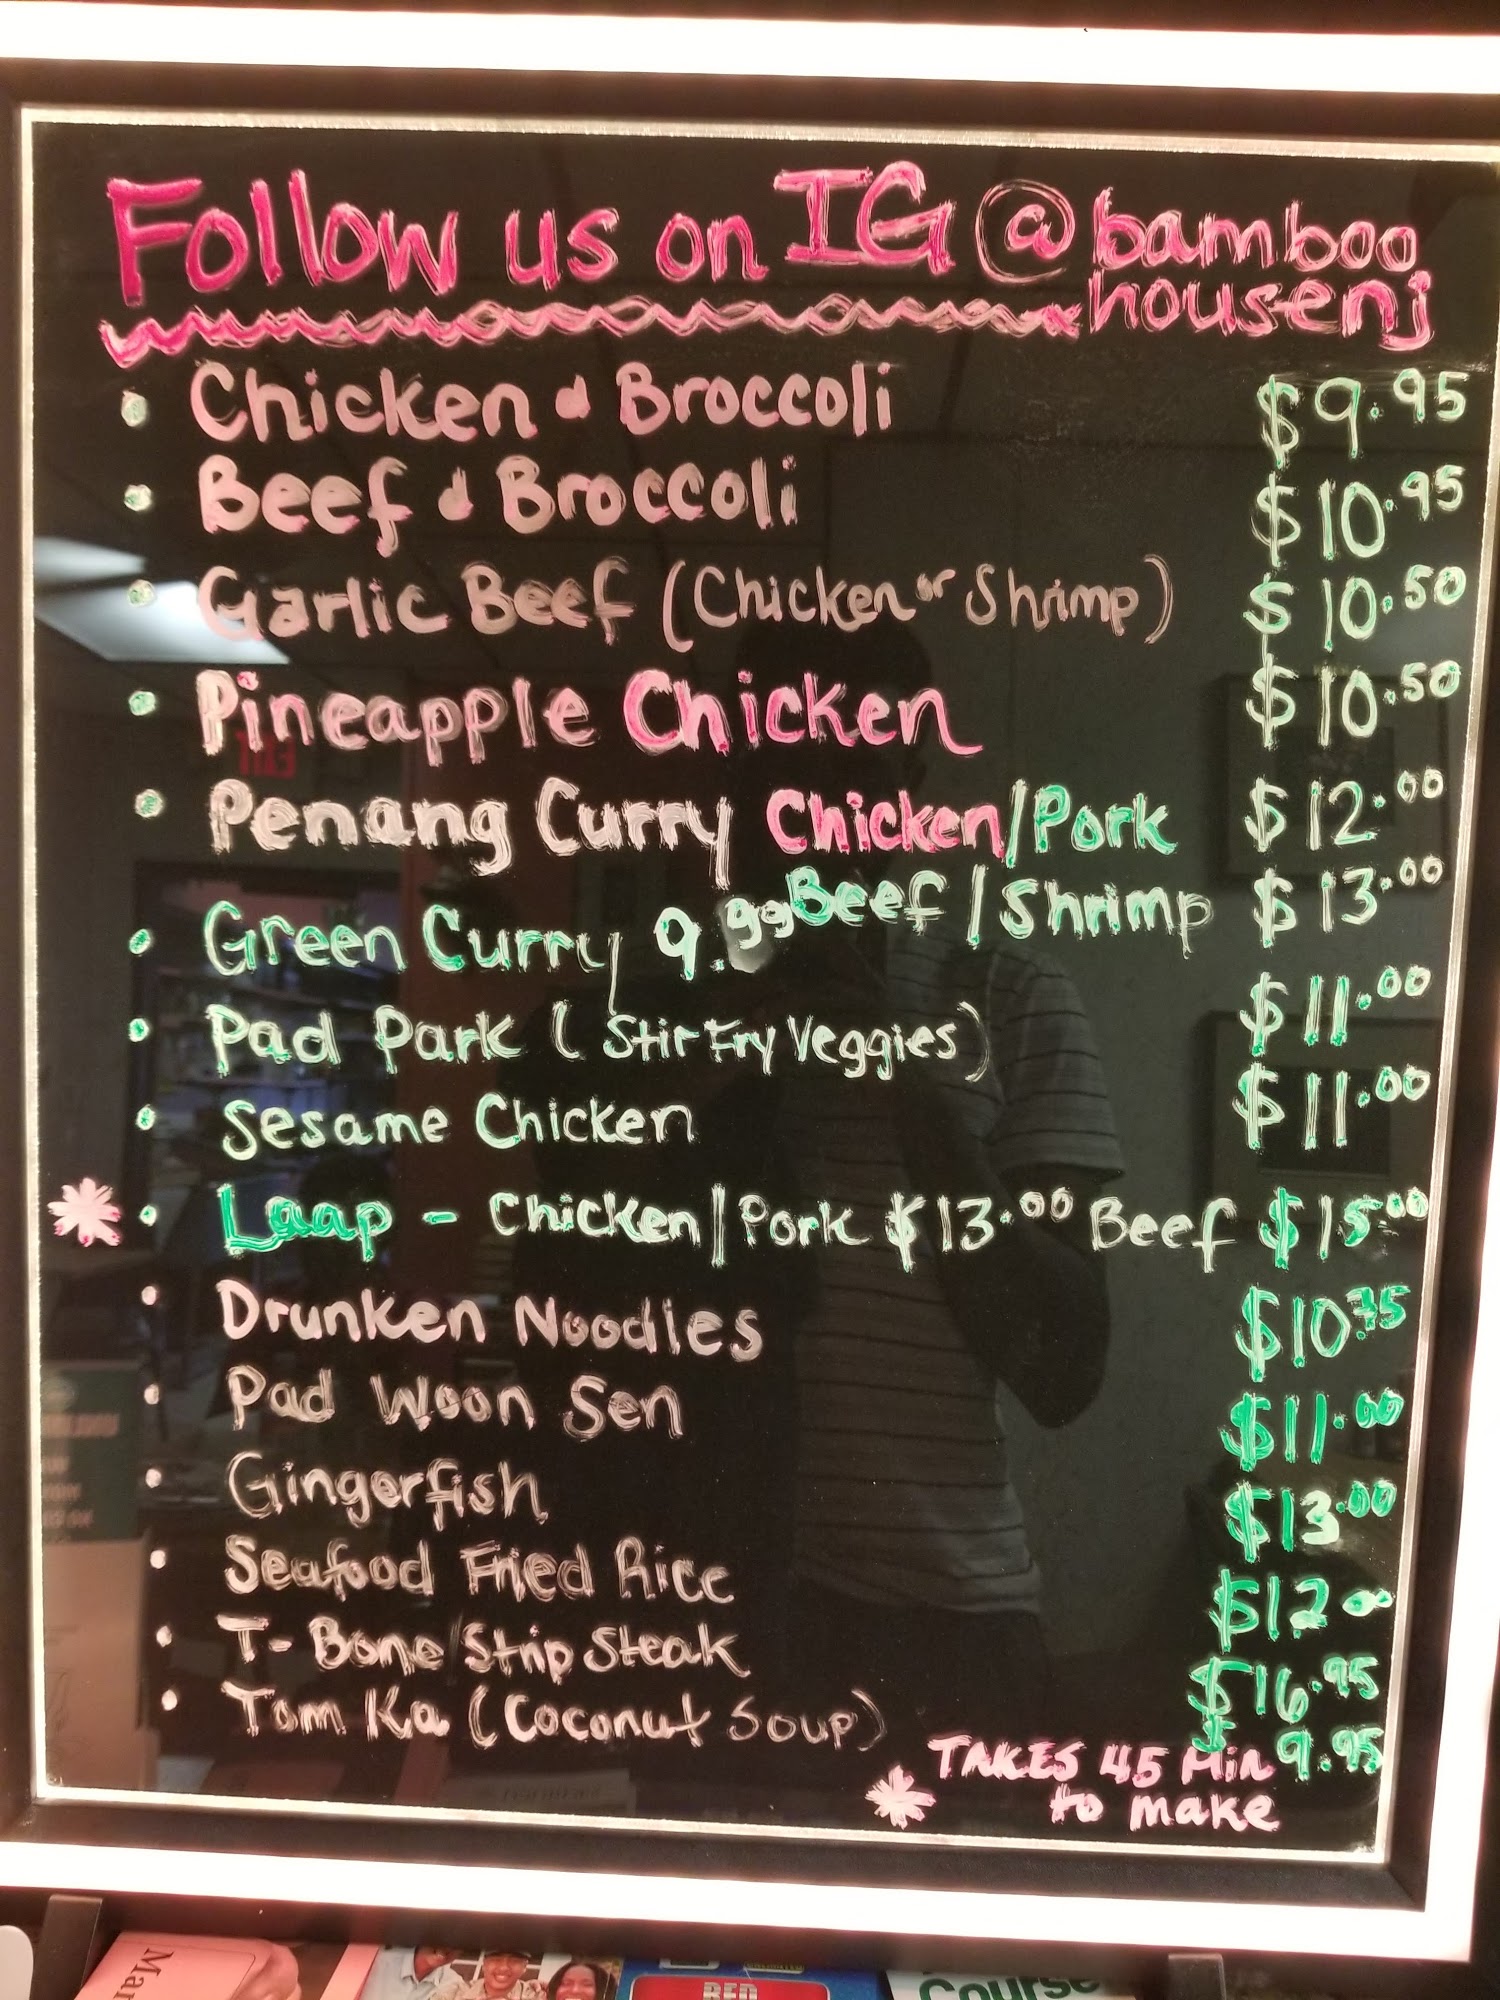 Follow us on IG @bamboo
housenj
• Chicken & Broccoli $9.95
• Beef & Broccoli $10.95
• Garlic Beef (Chicken or Shrimp) $10.50
• Pineapple Chicken $10.50
• Penang Curry Chicken/Pork $12.00
Beef/Shrimp $13.00
• Green Curry 9.99
• Pad Park (Stir Fry Veggies) $11.00
• Sesame Chicken $11.00
* • Laap - Chicken/Pork $13.00 Beef $15.00
• Drunken Noodles $10.75
• Pad Woon Sen $11.00
• Gingerfish $13.00
• Seafood Fried Rice $12.00
• T-Bone Strip Steak $16.95
• Tom Ka (Coconut Soup) $9.95
* TAKES 45 Min
to make
Mar
RED
Course